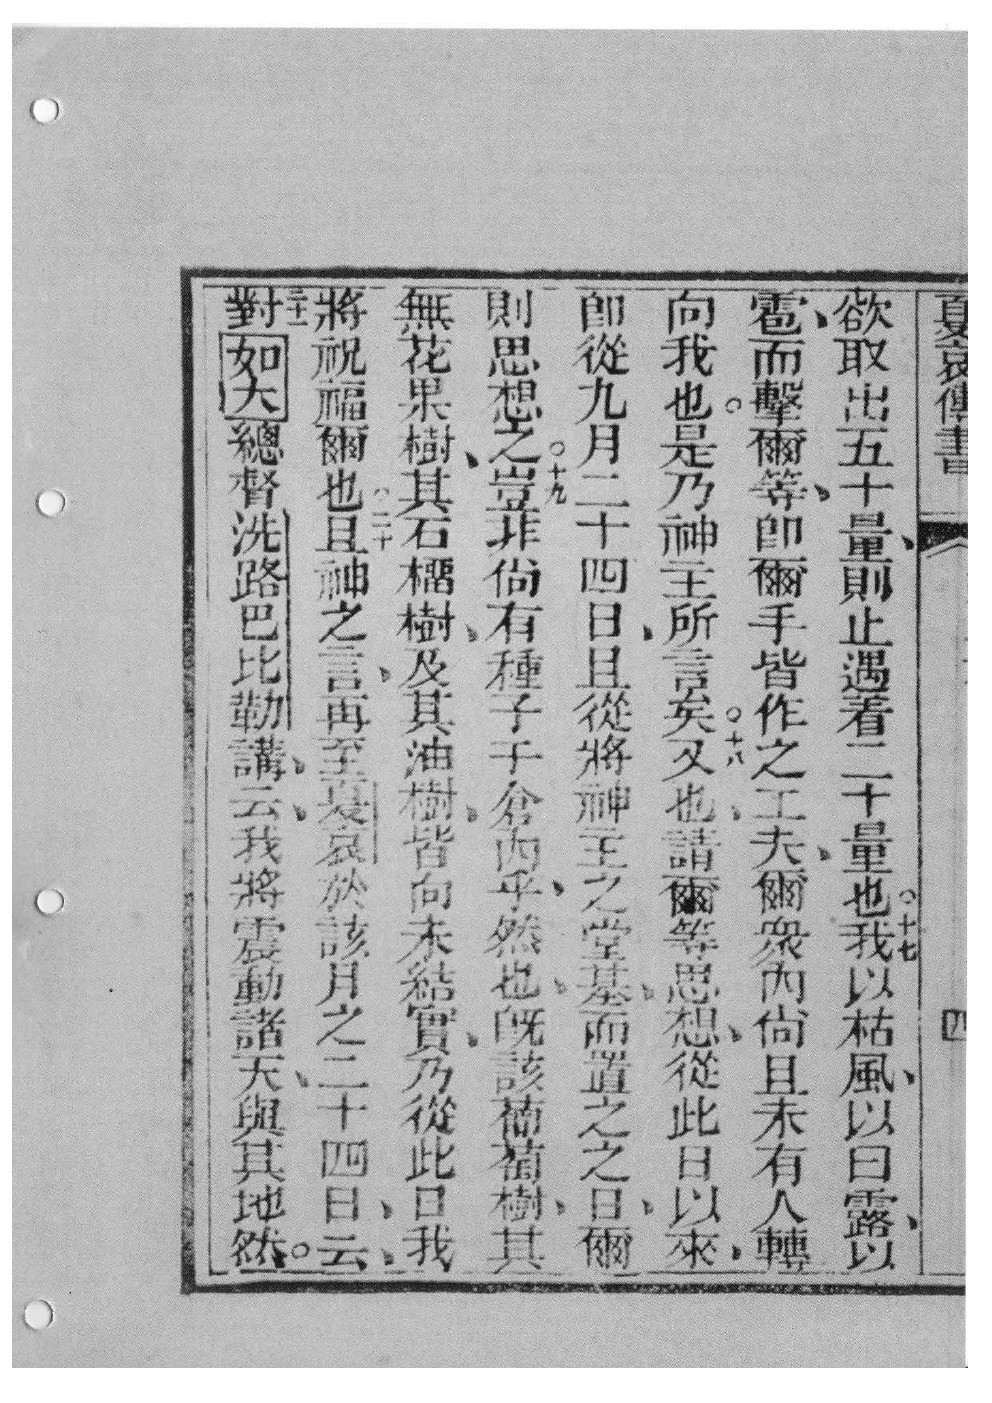 夏哀傳書
四
欲取出五十量、則止遇着二十量也。十七我以枯風、以曰露、以
雹、而擊爾等、卽爾手皆作之工夫、爾衆內尙且未有人轉
向我也。是乃神主所言矣。十八又也、請爾等思想、從此日以來、
卽從九月二十四日、且從將神主之堂基、而置之之日、爾
則思想之。十九豈非尙有種子于倉內乎、然也、旣該葡萄樹、其
無花果樹、其石榴樹、及其油樹、皆向未結實、乃從此日我
將祝福爾也。二十且神之言、再至夏哀於該月之二十四日、云、
二十一對如大總督洗路巴比勒講、云、我將震動諸天、與其地然。